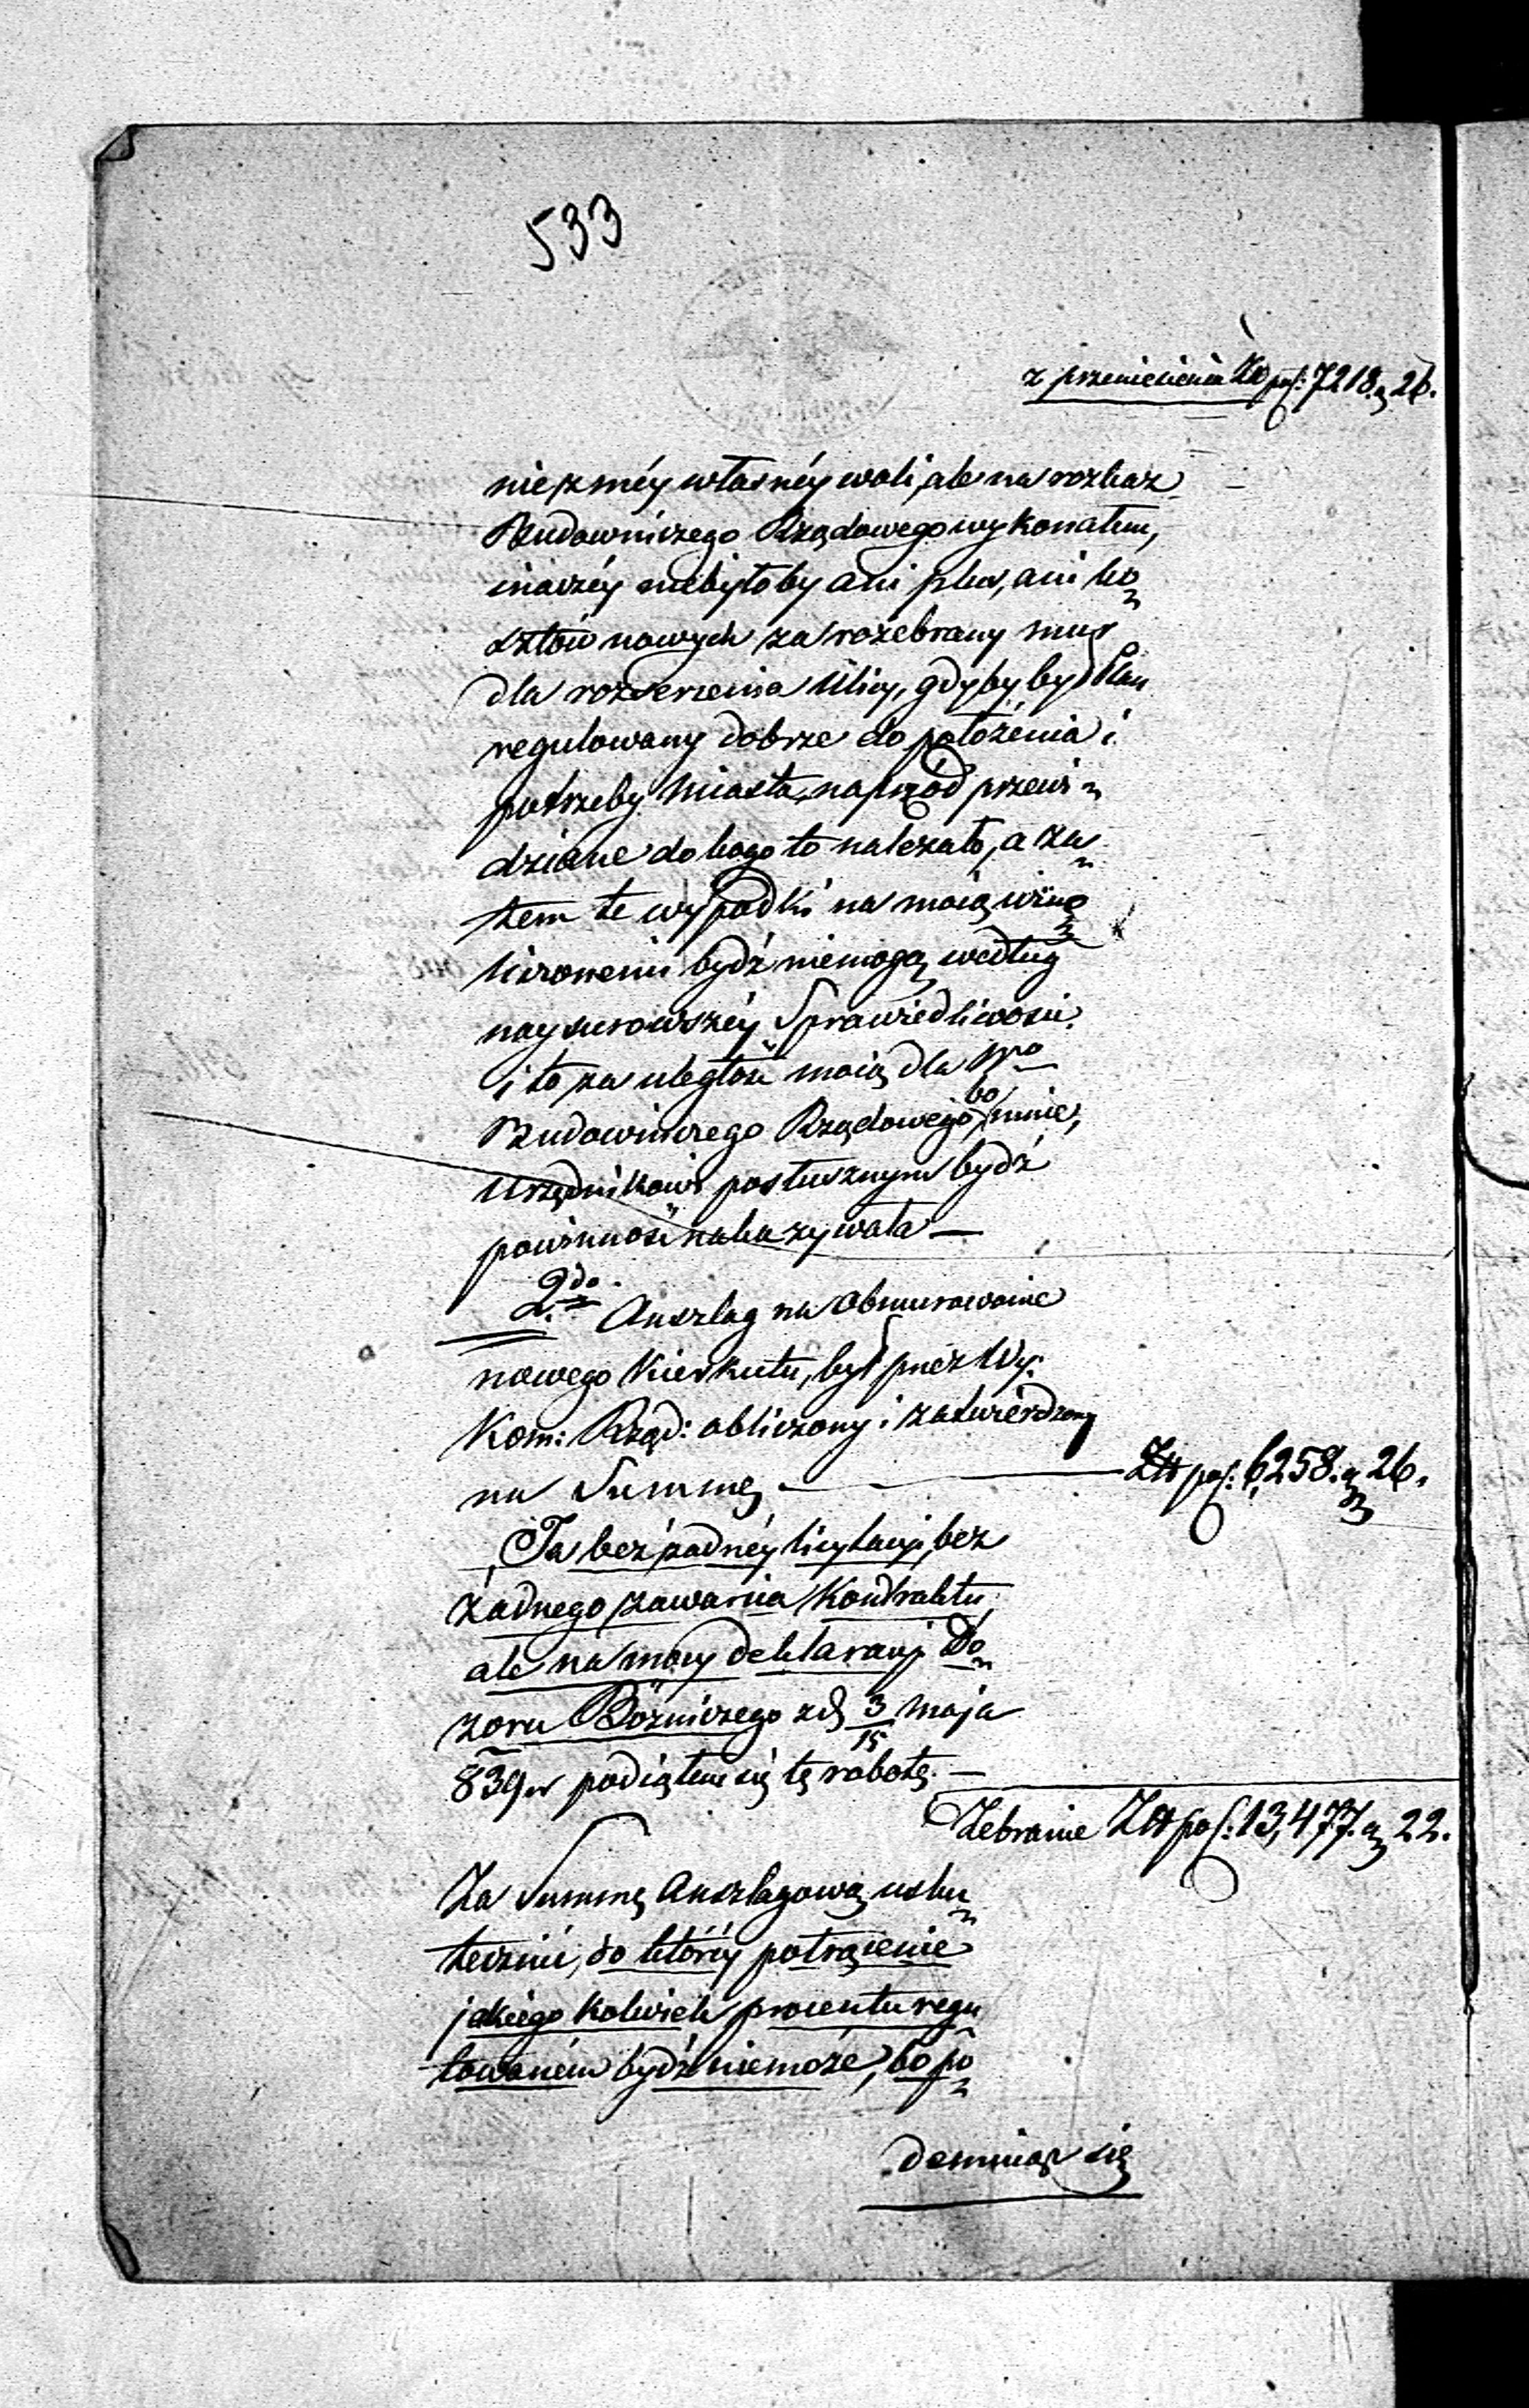 533
z przeniesienia Złt pol: 7218. g 26.
nie z méy własnéy woli, ale na rozkaz
Budowniczego Rządowego wykonałem,
inaczéy niebyłoby ani plus, ani ko
sztów nowych za rozebrany mur
dla rozserzenia Ulicy, gdyby był Plan
regulowany dobrze do położenia i
potrzeby Miasta, naprzód przewi
dziane do kogo to należało, a za
tem te wypadki na moią winę
kierowenii bydź niemogą według
naysurowszéy Sprawiedliwości.
i to za uległość moią dla Wgo
Budowniczego Rządowego, bo mnie,
Urzędnikowi posłusznym bydź
powinność nakazywała —
2do. Anszlag na Obmurowanie
nowego Kierkutu, był przez Wy:
Kom: Rząd: obliczony i zatwierdzony
na Summę — Złt pol: 6258. g 26.
Ta bez żadnéy licytacyi, bez
żadnego zawarcia Kontraktu,
ale na mocy deklaracyi Do
zoru Bóżniczego z d 3/15 maja
839 r podiąłem się tę robotę. —
Zebranie Złt pol: 13,477. g 22.
Za Summę Anszlagową usku
tecznić, do któréy potrącenie
jakiego kolwiek procentu regu
lowaném bydź niemoże, bo po
demniąż się